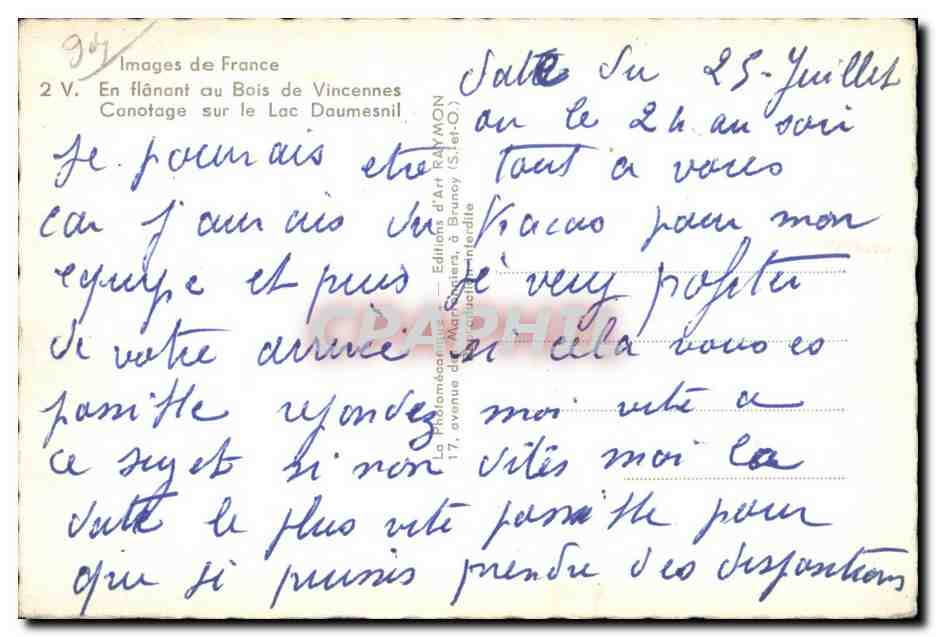 90f
Images de France
2 V. En flânant au Bois de Vincennes
Canotage sur le Lac Daumesnil
date du 25-Juillet
ou le 24 au soir
je pourais etre tout a vous
car j'aurais du tracas pour mon
equipe et puis je veux profiter
de votre arrivée si cela vous es
possible repondez moi vite a
ce sujet si non dites moi la
date le plus vite possible pour
que je puisses prendre des dispositions
La Photomécanique. — Editions d'Art RAYMON
17, avenue des Marronniers, à Brunoy (S.-et-O.)
Reproduction interdite
CPAPHIL